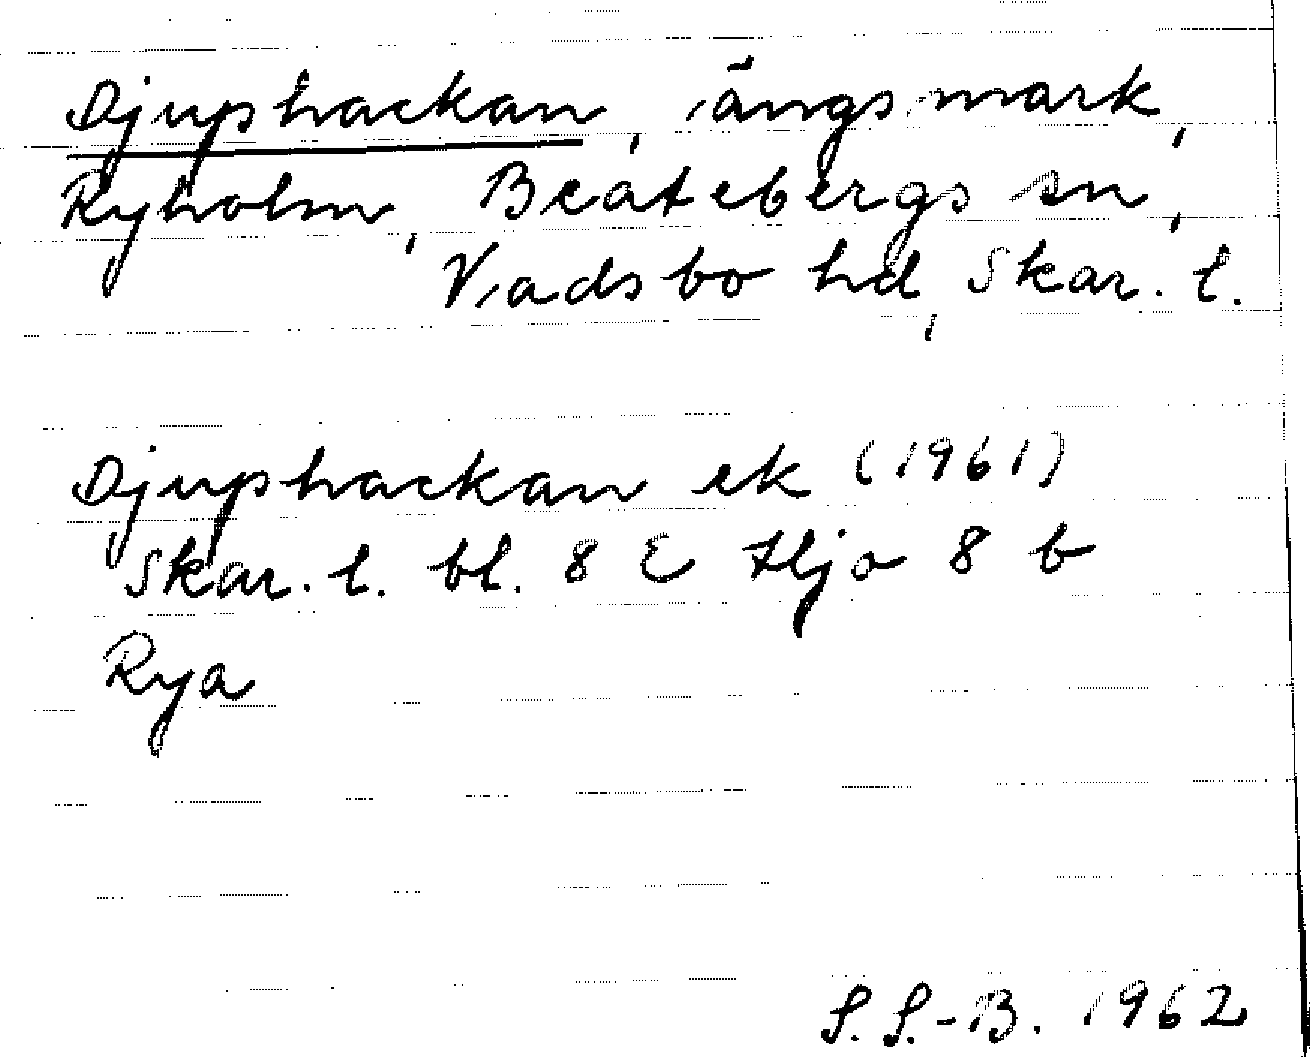 Djuphackan, ängsmark,
Ryholm, Beatebergs sn,
Vadsbo hd, Skar. l.
Djuphackan ek (1961)
Skar. l. bl. 8 E Hjo 8 b
Rya
S. S.-B. 1962